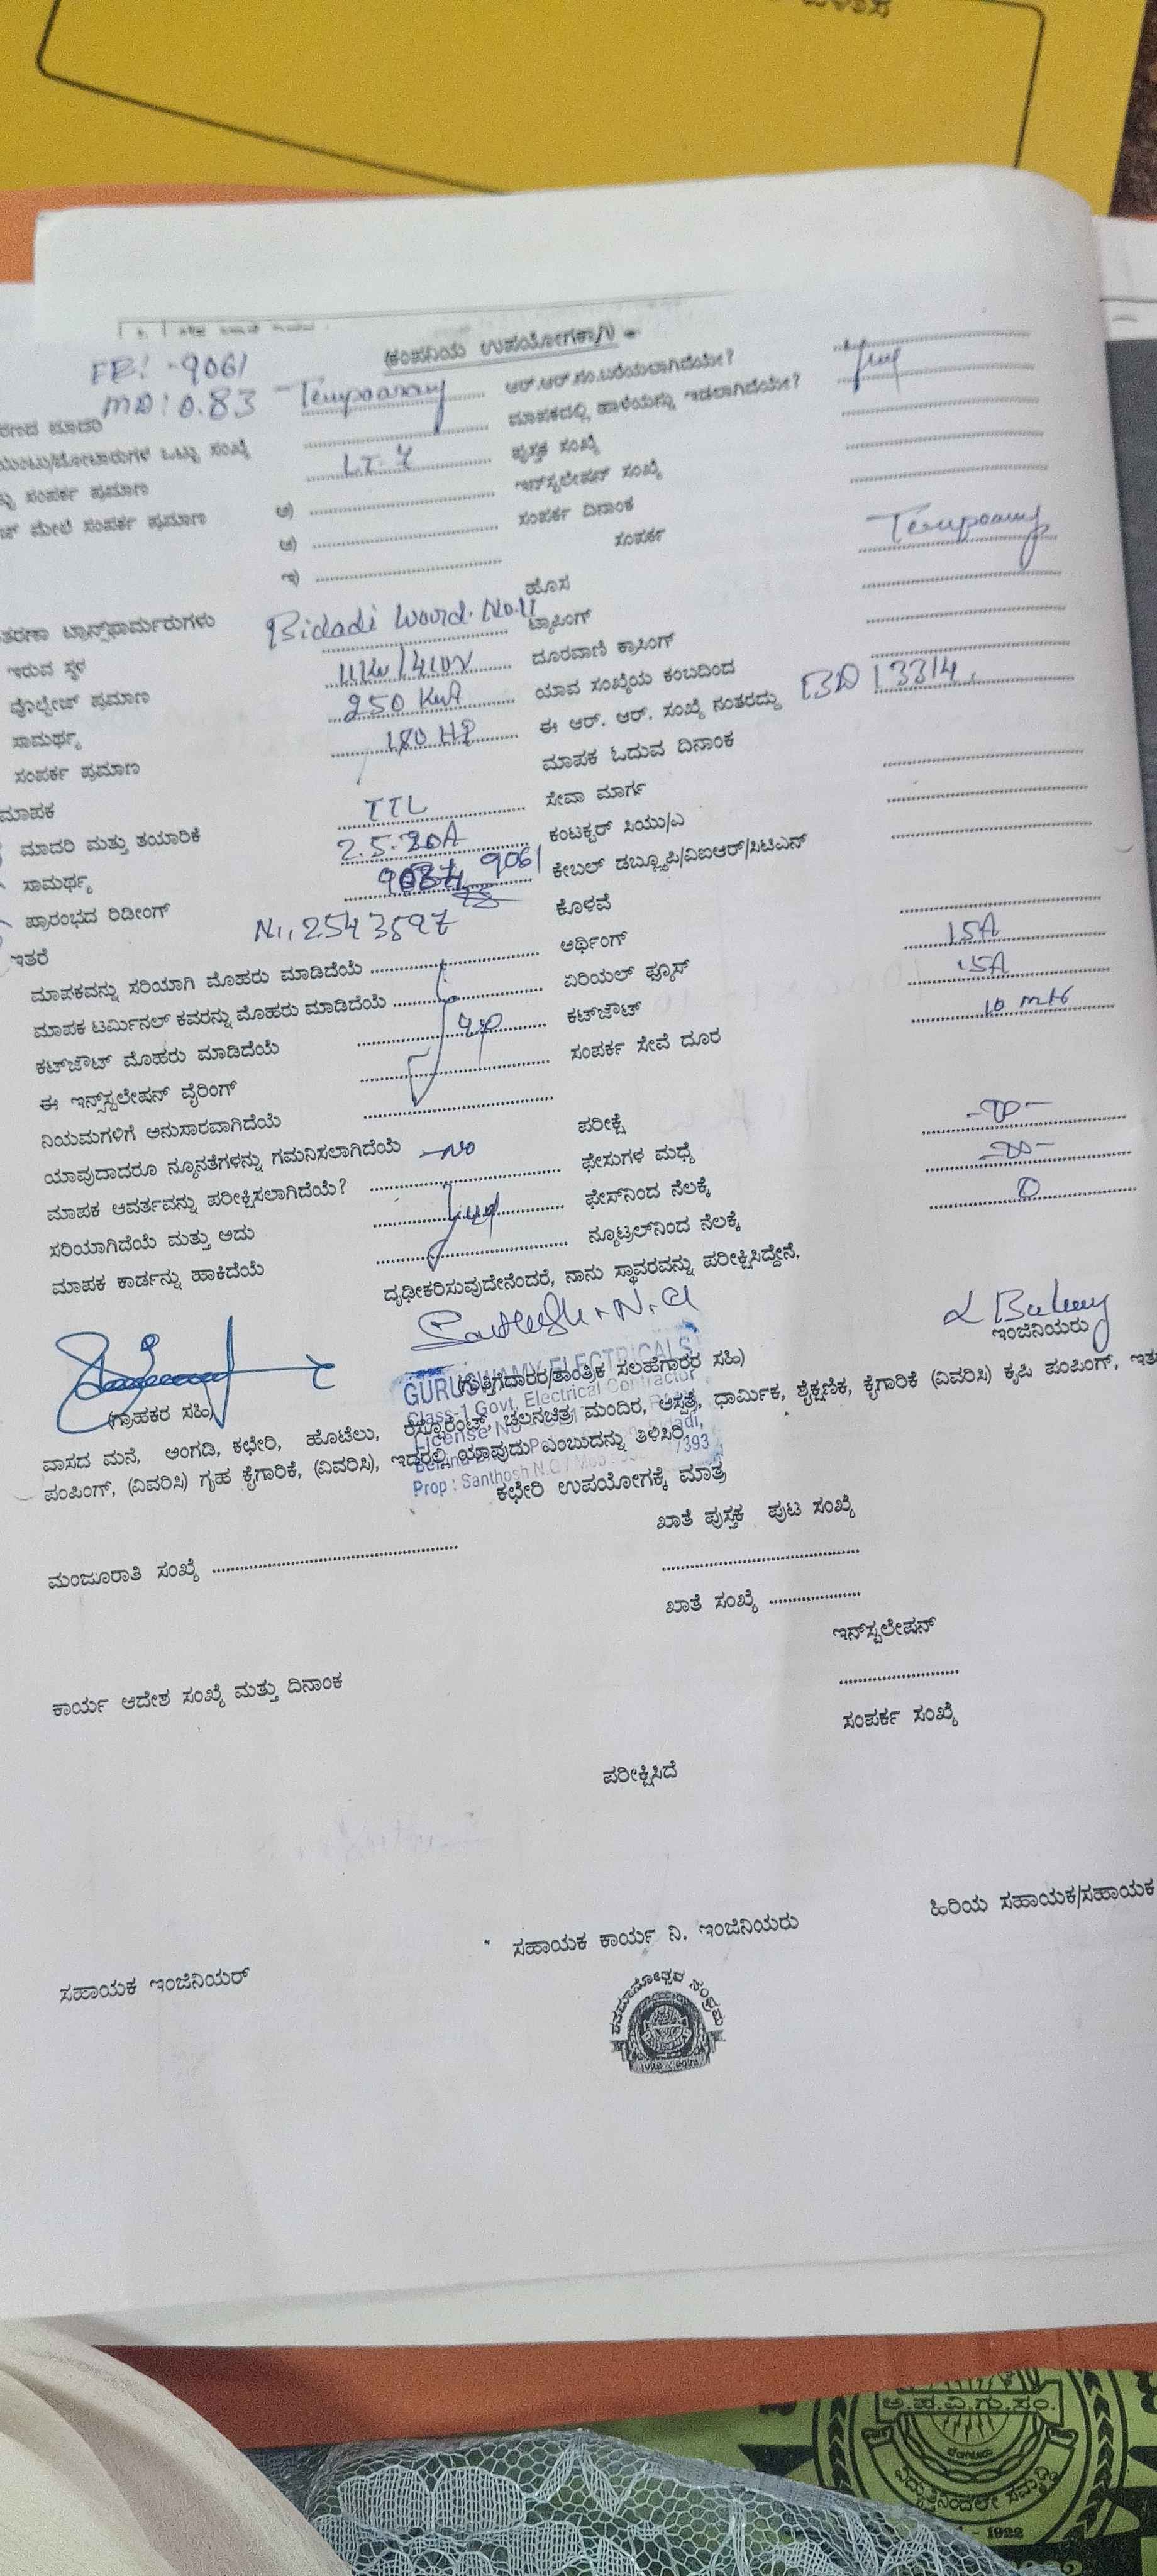 (ಕಂಪನಿಯ ಉಪಯೋಗಕ್ಕಾಗಿ)
FR: -9061
MD: 0.83
Temporary
ಆರ್.ಆರ್.ನಂ.ಬರೆಯಲಾಗಿದೆಯೇ?
ರಣದ ಮಾದರಿ
ಮಾಪಕದಲ್ಲಿ ಹಾಳೆಯನ್ನು ಇಡಲಾಗಿದೆಯೇ?
ಒಟ್ಟು ಸಂಖ್ಯೆ L.T. 7 ಪುಸ್ತಕ ಸಂಖ್ಯೆ
ಸಂಪರ್ಕ ಪ್ರಮಾಣ ಅ) ಇನ್‌ಸ್ಟಲೇಷನ್ ಸಂಖ್ಯೆ
ಮೇಲೆ ಸಂಪರ್ಕ ಪ್ರಮಾಣ ಆ) ಸಂಪರ್ಕ ದಿನಾಂಕ
ಇ) ಸಂಪರ್ಕ Temporary
ತರಣಾ ಟ್ರಾನ್ಸ್‌ಫಾರ್ಮರುಗಳು ಹೊಸ
ಇರುವ ಸ್ಥಳ Bidadi Ward. No.11 ಟ್ಯಾಪಿಂಗ್
ವೋಲ್ಟೇಜ್ ಪ್ರಮಾಣ 11KV/410V ದೂರವಾಣಿ ಕ್ರಾಸಿಂಗ್
ಸಾಮರ್ಥ್ಯ 250 KVA ಯಾವ ಸಂಖ್ಯೆಯ ಕಂಬದಿಂದ
ಸಂಪರ್ಕ ಪ್ರಮಾಣ 180 HP ಈ ಆರ್. ಆರ್. ಸಂಖ್ಯೆ ನಂತರದ್ದು BD13314.
ಮಾಪಕ ಮಾಪಕ ಓದುವ ದಿನಾಂಕ
ಮಾದರಿ ಮತ್ತು ತಯಾರಿಕೆ TTL ಸೇವಾ ಮಾರ್ಗ
ಸಾಮರ್ಥ್ಯ 2.5.20A ಕಂಟಕ್ಟರ್ ಸಿಯು/ಎ
ಪ್ರಾರಂಭದ ರಿಡೀಂಗ್ 9061 ಕೇಬಲ್ ಡಬ್ಲ್ಯೂಪಿ/ವಿಐಆರ್/ಸಿಟಿಎಸ್
ಇತರೆ ಕೊಳವೆ
ಮಾಪಕವನ್ನು ಸರಿಯಾಗಿ ಮೊಹರು ಮಾಡಿದೆಯೆ ಅರ್ಥಿಂಗ್
ಮಾಪಕ ಟರ್ಮಿನಲ್ ಕವರನ್ನು ಮೊಹರು ಮಾಡಿದೆಯೆ ಏರಿಯಲ್ ಫ್ಯೂಸ್ 15A
ಕಟ್‌ಔಟ್ ಮೊಹರು ಮಾಡಿದೆಯೆ ಕಟ್‌ಔಟ್ 15A
ಈ ಇನ್ಸ್‌ಸ್ಟಲೇಷನ್ ವೈರಿಂಗ್ ಸಂಪರ್ಕ ಸೇವೆ ದೂರ 10 mts
ನಿಯಮಗಳಿಗೆ ಅನುಸಾರವಾಗಿದೆಯೆ
ಯಾವುದಾದರೂ ನ್ಯೂನತೆಗಳನ್ನು ಗಮನಿಸಲಾಗಿದೆಯೆ -No ಪರೀಕ್ಷೆ
ಮಾಪಕ ಆವರ್ತವನ್ನು ಪರೀಕ್ಷಿಸಲಾಗಿದೆಯೆ? ಫೇಸುಗಳ ಮಧ್ಯೆ
ಸರಿಯಾಗಿದೆಯೆ ಮತ್ತು ಅದು ಫೇಸ್‌ನಿಂದ ನೆಲಕ್ಕೆ
ಮಾಪಕ ಕಾರ್ಡನ್ನು ಹಾಕಿದೆಯೆ ನ್ಯೂಟ್ರಲ್‌ನಿಂದ ನೆಲಕ್ಕೆ 0
ದೃಢೀಕರಿಸುವುದೇನೆಂದರೆ, ನಾನು ಸ್ಥಾವರವನ್ನು ಪರೀಕ್ಷಿಸಿದ್ದೇನೆ.
Santhosh.N.C
(ಗ್ರಾಹಕರ ಸಹಿ) (ಗುತ್ತಿಗೆದಾರರ/ತಾಂತ್ರಿಕ ಸಲಹೆಗಾರರ ಸಹಿ) ಇಂಜಿನಿಯರು
GURUSWAMY ELECTRICALS
Class-1 Govt. Electrical Contractor
Prop : Santhosh N.C
ವಾಸದ ಮನೆ, ಅಂಗಡಿ, ಕಛೇರಿ, ಹೊಟೆಲು, ರೆಸ್ಟೋರೆಂಟ್, ಚಲನಚಿತ್ರ ಮಂದಿರ, ಆಸ್ಪತ್ರೆ, ಧಾರ್ಮಿಕ, ಶೈಕ್ಷಣಿಕ, ಕೈಗಾರಿಕೆ (ವಿವರಿಸಿ) ಕೃಷಿ ಪಂಪಿಂಗ್,
ಪಂಪಿಂಗ್, (ವಿವರಿಸಿ) ಗೃಹ ಕೈಗಾರಿಕೆ, (ವಿವರಿಸಿ), ಇದರಲ್ಲಿ ಯಾವುದು ಎಂಬುದನ್ನು ತಿಳಿಸಿರಿ.
ಕಛೇರಿ ಉಪಯೋಗಕ್ಕೆ ಮಾತ್ರ
ಖಾತೆ ಪುಸ್ತಕ ಪುಟ ಸಂಖ್ಯೆ
ಮಂಜೂರಾತಿ ಸಂಖ್ಯೆ
ಖಾತೆ ಸಂಖ್ಯೆ
ಇನ್‌ಸ್ಟಲೇಷನ್
ಕಾರ್ಯ ಆದೇಶ ಸಂಖ್ಯೆ ಮತ್ತು ದಿನಾಂಕ
ಸಂಪರ್ಕ ಸಂಖ್ಯೆ
ಪರೀಕ್ಷಿಸಿದೆ
ಸಹಾಯಕ ಇಂಜಿನಿಯರ್ ಸಹಾಯಕ ಕಾರ್ಯ ನಿ. ಇಂಜಿನಿಯರು ಹಿರಿಯ ಸಹಾಯಕ/ಸಹಾಯಕ
ಶತಮಾನೋತ್ಸವ ಸಂಭ್ರಮ
ಅ.ಪ.ವಿ.ಗು.ಸಂ.
ವಿದ್ಯುತ್ತಿನಿಂದಲೇ ಸಮೃದ್ಧಿ
- 1922